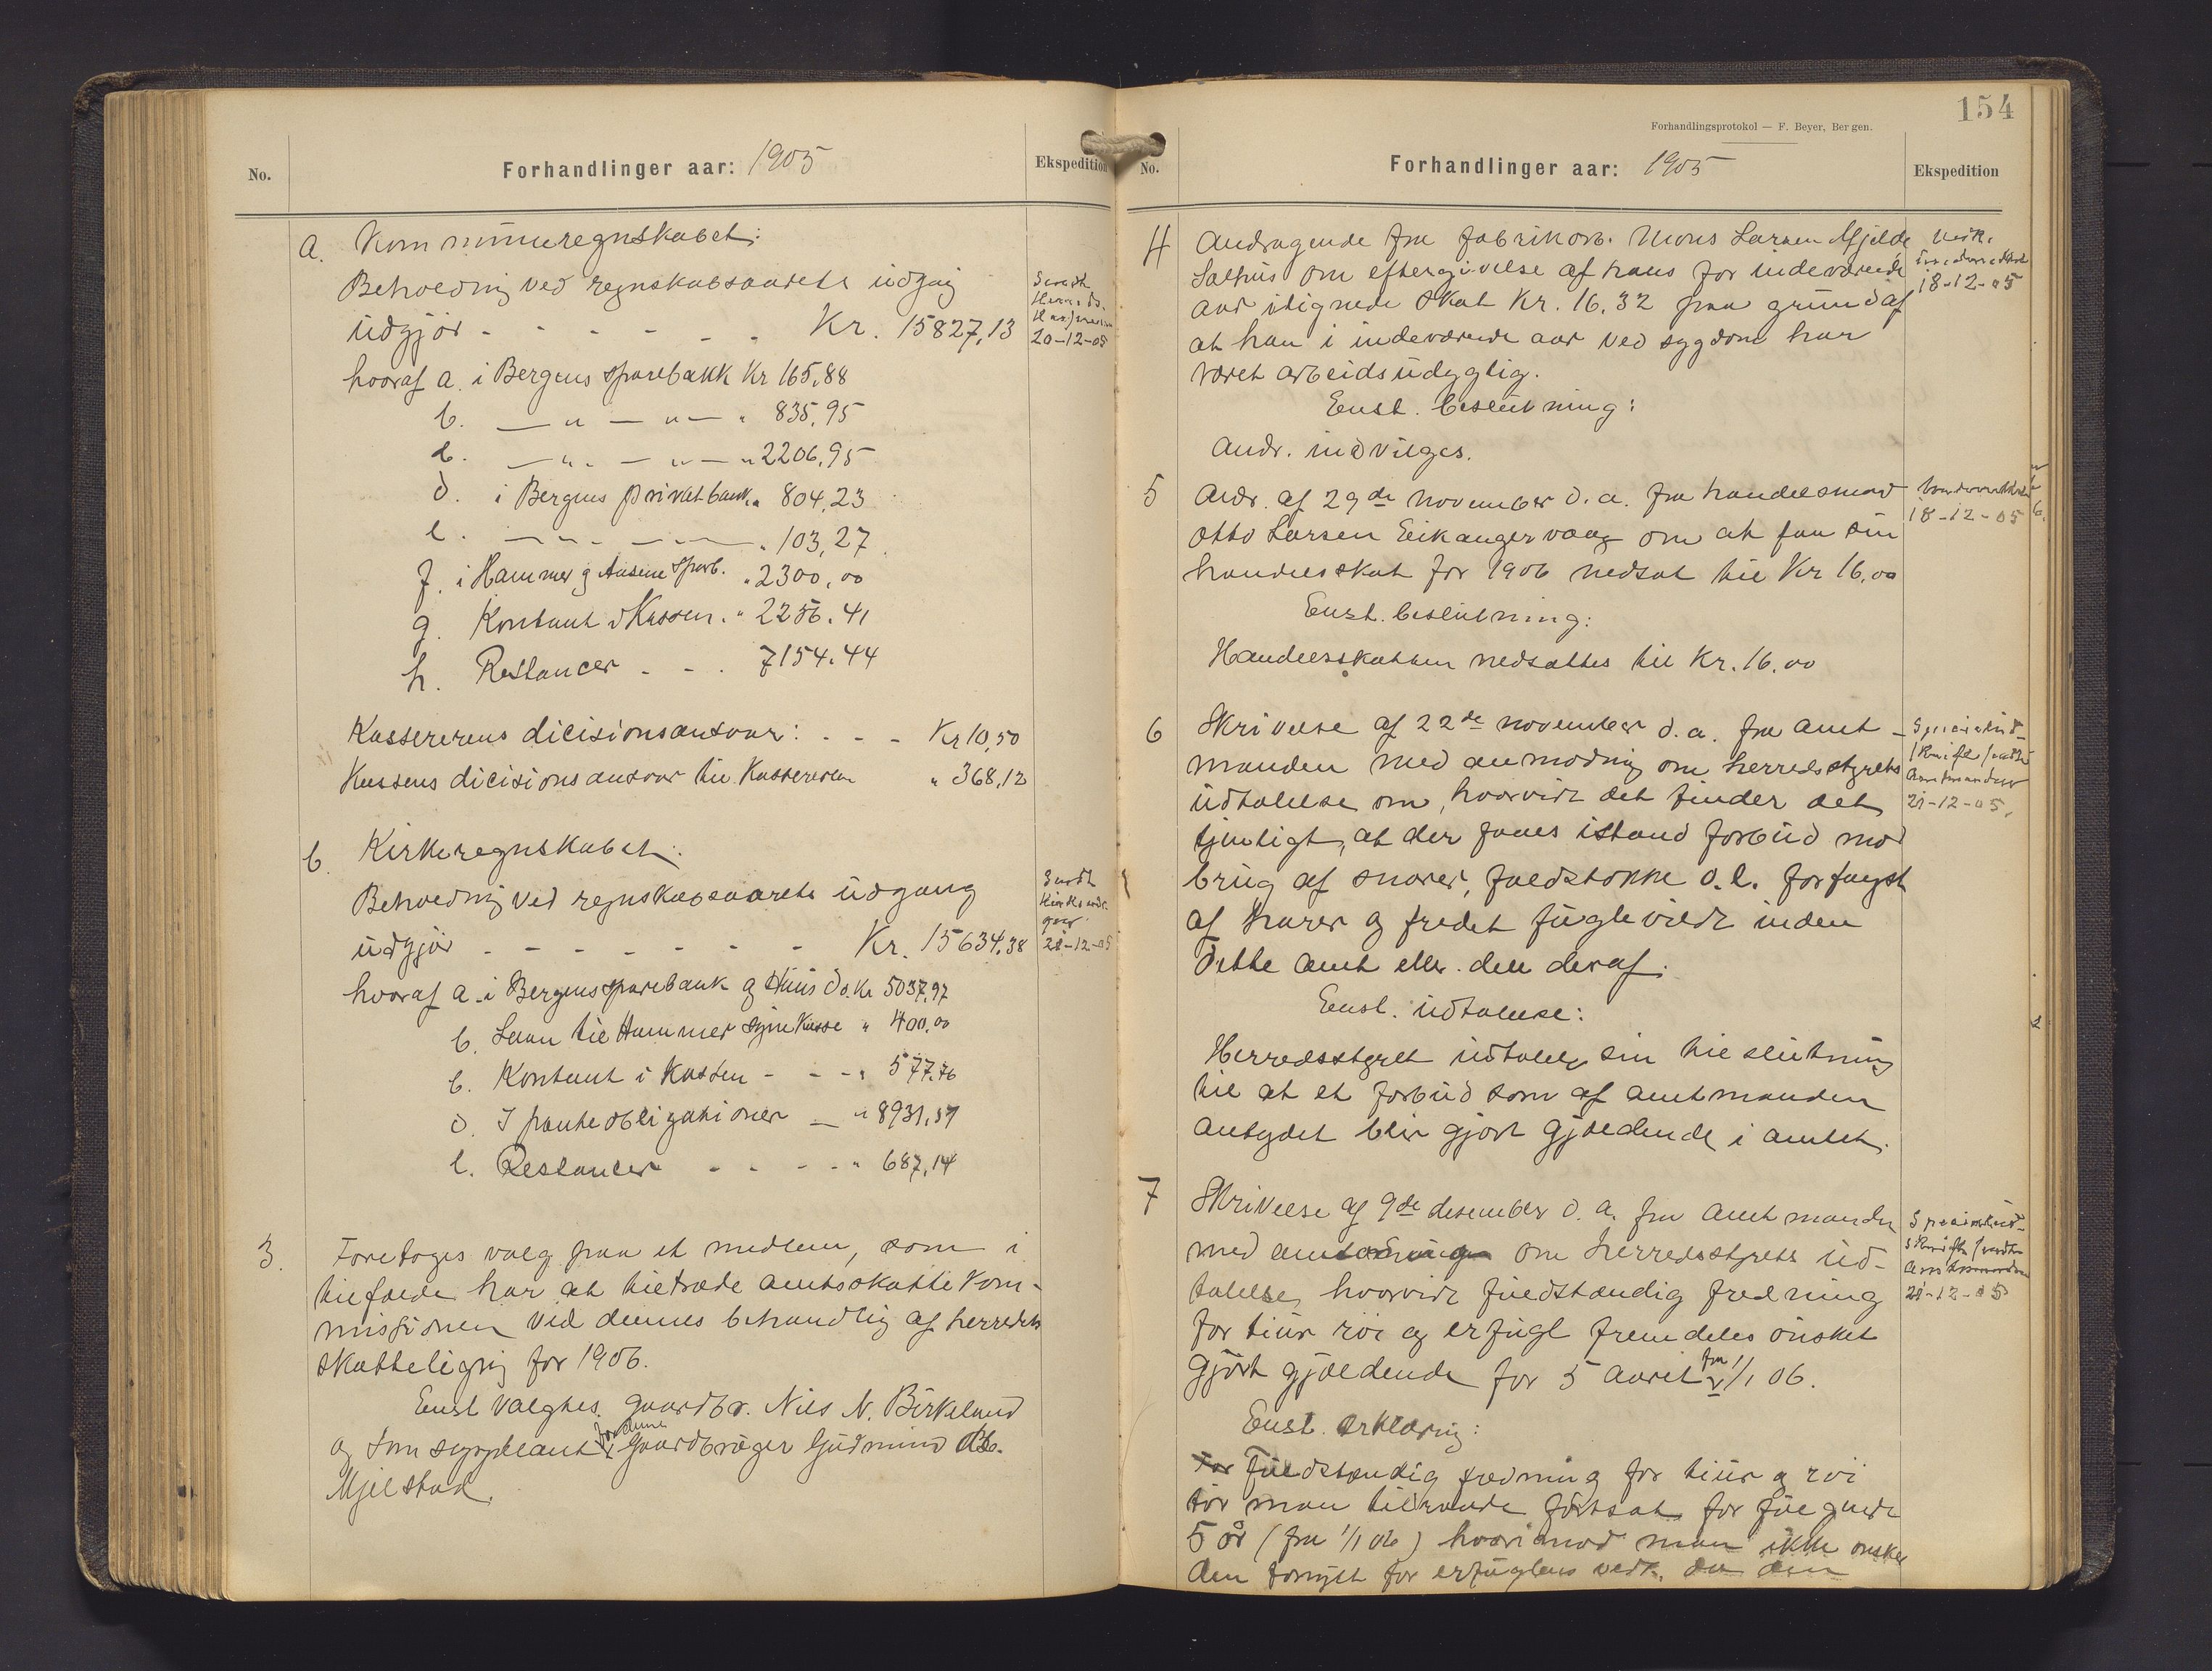 No.
Forhandlinger aar: 1905
Ekspedition
a. Kommuneregnskabet:
Beholdning ved regnskabsaarets udgang
udgjør - - - - - - Kr. 15827,13
Sendt
20-12-05
hvoraf a. i Bergens sparebank Kr 165,88
b. — " — " — " 835,95
c. — " — " — " 2206,95
d. i Bergens privatbank " 804,23
e. — " — " — " 103,27
f. i Hammer og Aasene Spareb. " 2300,00
g. Kontant i Kassen. " 2256,41
h. Restancer - - . 7154,44
Kassererens dicisionsansvar: - - - Kr 10,50
Kassens dicisionsansvar til Kassereren " 368,12
b. Kirkeregnskabet:
Beholdning ved regnskabsaarets udgang
udgjør - - - - - - - Kr. 15634,38
Sendt
21-12-05
hvoraf a. i Bergens sparebank og Huus do. Kr 5037,97
b. Laan til Hammer Kasse " 400,00
c. Kontant i Kassen - - - " 577,76
d. I panteobligationer — " 8931,51
e. Restancer - - - - - " 687,14
3. Foretoges valg paa et medlem, som i
tilfælde har at tiltræde amtsskattekom-
missionen ved dennes behandlig af herredets
skatteligng for 1906.
Enst valgtes gaardbr. Nils N. Birkeland
og som suppleant for denne Gaardbruger Gudmund
Mjelstad.
154
Forhandlingsprotokol — F. Beyer, Bergen.
No.
Forhandlinger aar: 1905
Ekspedition
4 Andragende fra fabrikarb. Mons Larsen Mjelde
Salhus om eftergivelse af hans for indeværende
aar ilignede Skat Kr. 16,32 paa grund af
at han i indeværende aar ved sygdom har
været arbeidsudygtig.
18-12-05
Enst. beslutning:
Andr. indvilges.
5 Andr. af 29de november d. a. fra handelsmand
Otto Larsen Eikangervaag om at faa sin
handelsskat for 1906 nedsat til Kr 16,00
18-12-05
Enst. beslutning:
Handelsskatten nedsættes til Kr. 16,00
6 Skrivelse af 22de november d. a. fra amt-
manden med anmodning om herredsstyrets
udtalelse om, hvorvidt det finder det
tjenligt, at der faaes istand forbud mod
brug af snarer, fældstokke o. l. for fangst
af harer og fredet fuglevildt inden
dette amt eller del deraf.
Specialud-
skrift sendt
Amtmanden
21-12-05.
Enst. udtalelse:
Herredsstyret udtaler sin tilslutning
til at et forbud som af amtmanden
antydet blir gjort gjældende i amtet.
7 Skrivelse af 9de desember d. a. fra amtmanden
med om herredsstyrets ud-
talelse, hvorvidt fuldstændig fredning
for tiur røi og erfugl fremdeles ønskes
gjort gjældende for 5 aaret fra 1/1 06.
Specialud-
skrift sendt
Amtmanden
21-12-05
Enst. erklæring:
Fuldstændig fredning for tiur og røi
tør man tilraade fortsat for følgende
5 år (fra 1/1 06) hvorimod man ikke ønsker
den fornyet for erfuglens vedk. da den